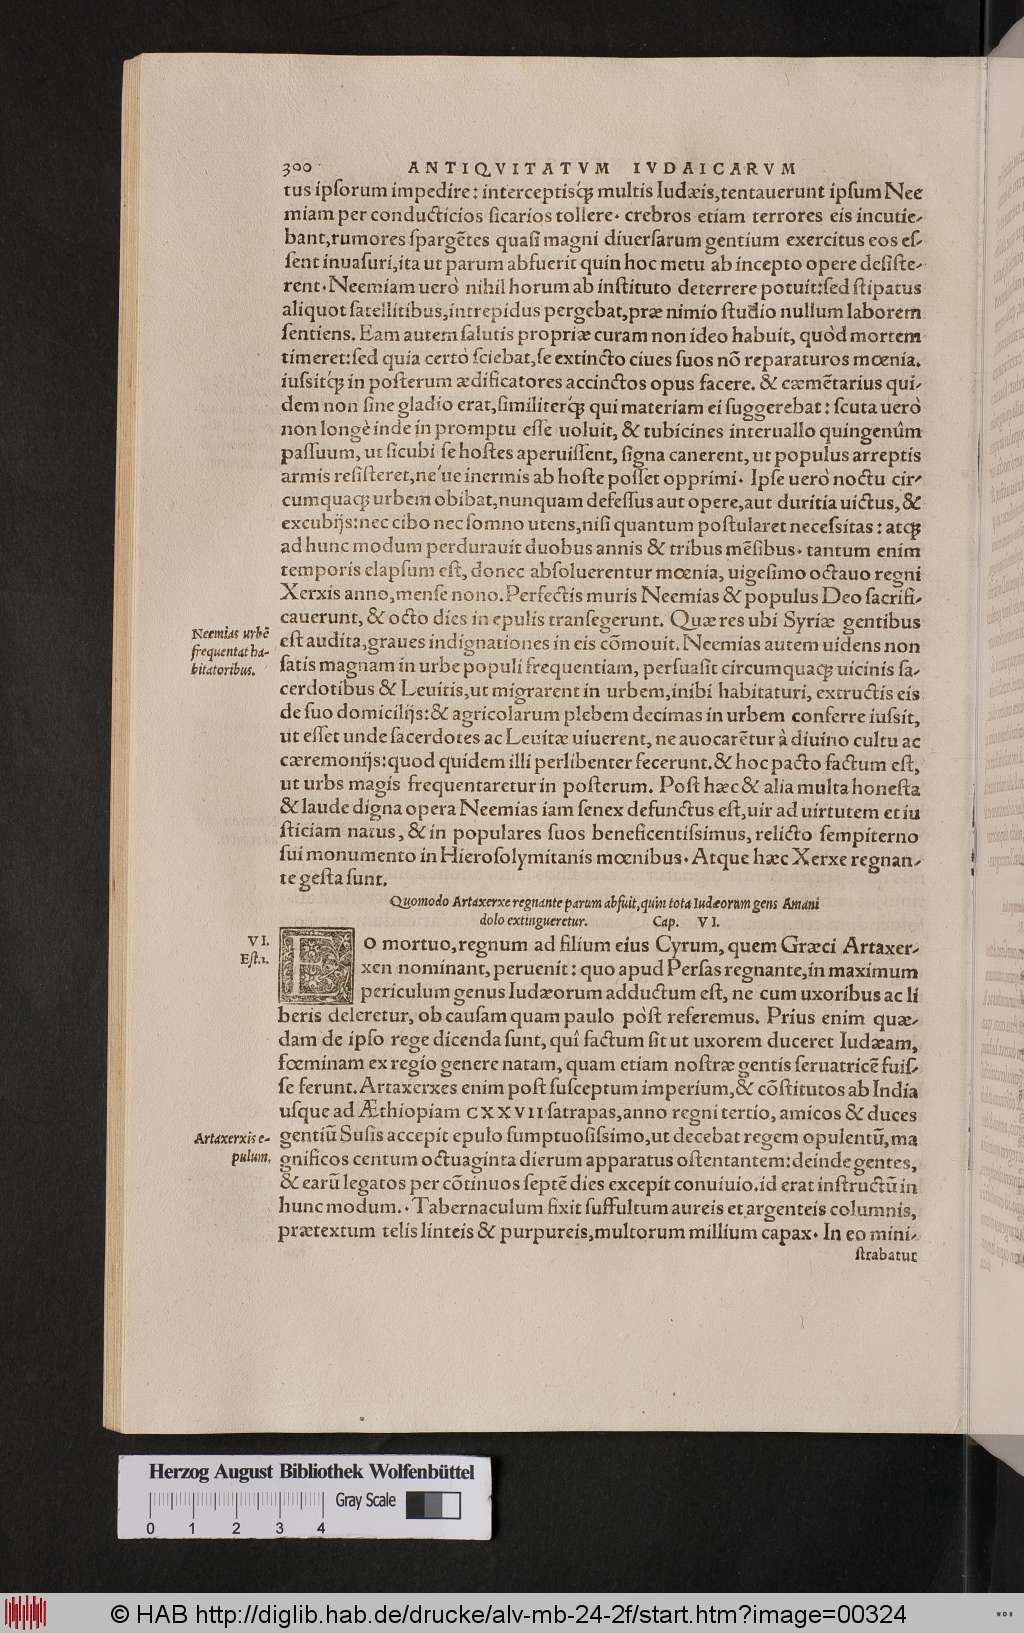 300 ANTIQVITATVM IVDAICARVM
tus ipſorum impedire: interceptisq́ꝫ multis Iudæis, tentauerunt ipſum Nee
miam per conducticios ſicarios tollere. crebros etiam terrores eis incutie-
bant, rumores ſpargẽtes quaſi magni diuerſarum gentium exercitus eos eſ-
ſent inuaſuri, ita ut parum abfuerit quin hoc metu ab incepto opere deſiſte-
rent. Neemiam uerò nihil horum ab inſtituto deterrere potuit: ſed ſtipatus
aliquot ſatellitibus, intrepidus pergebat, præ nimio ſtudio nullum laborem
ſentiens. Eam autem ſalutis propriæ curam non ideo habuit, quòd mortem
timeret: ſed quia certò ſciebat, ſe extincto ciues ſuos nõ reparaturos mœnia.
iuſsitq́ꝫ in poſterum ædificatores accinctos opus facere. & cæmẽtarius qui-
dem non ſine gladio erat, ſimiliterq́ꝫ qui materiam ei ſuggerebat: ſcuta uerò
non longè inde in promptu eſſe uoluit, & tubicines interuallo quingenûm
paſſuum, ut ſicubi ſe hoſtes aperuiſſent, ſigna canerent, ut populus arreptis
armis reſiſteret, ne'ue inermis ab hoſte poſſet opprimi. Ipſe uerò noctu cir-
cumquaqꝫ urbem obibat, nunquam defeſſus aut opere, aut duritia uictus, &
excubijs: nec cibo nec ſomno utens, niſi quantum poſtularet neceſsitas: atqꝫ
ad hunc modum perdurauit duobus annis & tribus mẽſibus. tantum enim
temporis elapſum eſt, donec abſoluerentur mœnia, uigeſimo octauo regni
Xerxis anno, menſe nono. Perfectis muris Neemias & populus Deo ſacrifi-
cauerunt, & octo dies in epulis tranſegerunt. Quæ res ubi Syriæ gentibus
Neemias urbẽ
frequentat ha-
bitatoribus.
eſt audita, graues indignationes in eis cõmouit. Neemias autem uidens non
ſatis magnam in urbe populi frequentiam, perſuaſit circumquaqꝫ uicinis ſa-
cerdotibus & Leuitis, ut migrarent in urbem, inibi habitaturi, extructis eis
de ſuo domicilijs: & agricolarum plebem decimas in urbem conferre iuſsit,
ut eſſet unde ſacerdotes ac Leuitæ uiuerent, ne auocarẽtur à diuino cultu ac
cæremonijs: quod quidem illi perlibenter fecerunt. & hoc pacto factum eſt,
ut urbs magis frequentaretur in poſterum. Poſt hæc & alia multa honeſta
& laude digna opera Neemias iam ſenex defunctus eſt, uir ad uirtutem et iu
ſticiam natus, & in populares ſuos beneficentiſsimus, relicto ſempiterno
ſui monumento in Hieroſolymitanis mœnibus. Atque hæc Xerxe regnan-
te geſta ſunt.
Quomodo Artaxerxe regnante parum abfuit, quin tota Iudæorum gens Amani
dolo extingueretur. Cap. VI.
VI.
Eſt.1.
EO mortuo, regnum ad filium eius Cyrum, quem Græci Artaxer-
xen nominant, peruenit: quo apud Perſas regnante, in maximum
periculum genus Iudæorum adductum eſt, ne cum uxoribus ac li
beris deleretur, ob cauſam quam paulo pòſt referemus. Prius enim quæ-
dam de ipſo rege dicenda ſunt, quî factum ſit ut uxorem duceret Iudæam,
fœminam ex regio genere natam, quam etiam noſtræ gentis ſeruatricẽ fuiſ-
ſe ferunt. Artaxerxes enim poſt ſuſceptum imperium, & cõſtitutos ab India
uſque ad Æthiopiam CXXVII ſatrapas, anno regni tertio, amicos & duces
Artaxerxis e-
pulum.
gentiũ Suſis accepit epulo ſumptuoſiſsimo, ut decebat regem opulentũ, ma
gnificos centum octuaginta dierum apparatus oſtentantem: deinde gentes,
& earũ legatos per cõtinuos ſeptẽ dies excepit conuiuio. id erat inſtructũ in
hunc modum. Tabernaculum fixit ſuffultum aureis et argenteis columnis,
prætextum telis linteis & purpureis, multorum millium capax. In eo mini-
ſtrabatur
Herzog August Bibliothek Wolfenbüttel
Gray Scale
0 1 2 3 4
© HAB http://diglib.hab.de/drucke/alv-mb-24-2f/start.htm?image=00324